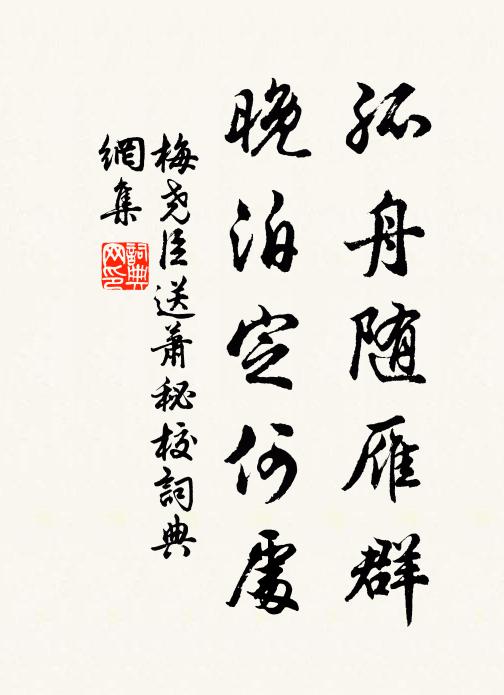 孤舟随雁群
晚泊定何處
梅尧臣送萧秘校詞典
網集
詞典
网印